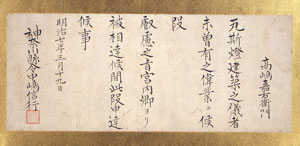 高嶋嘉右衛門
瓦斯燈建築之儀者
未曾有之偉業ニ候
段
叡慮之旨宮内卿ヨリ
被相達候間此段申達
候事
明治七年三月十九日
神奈川縣令中嶋信行